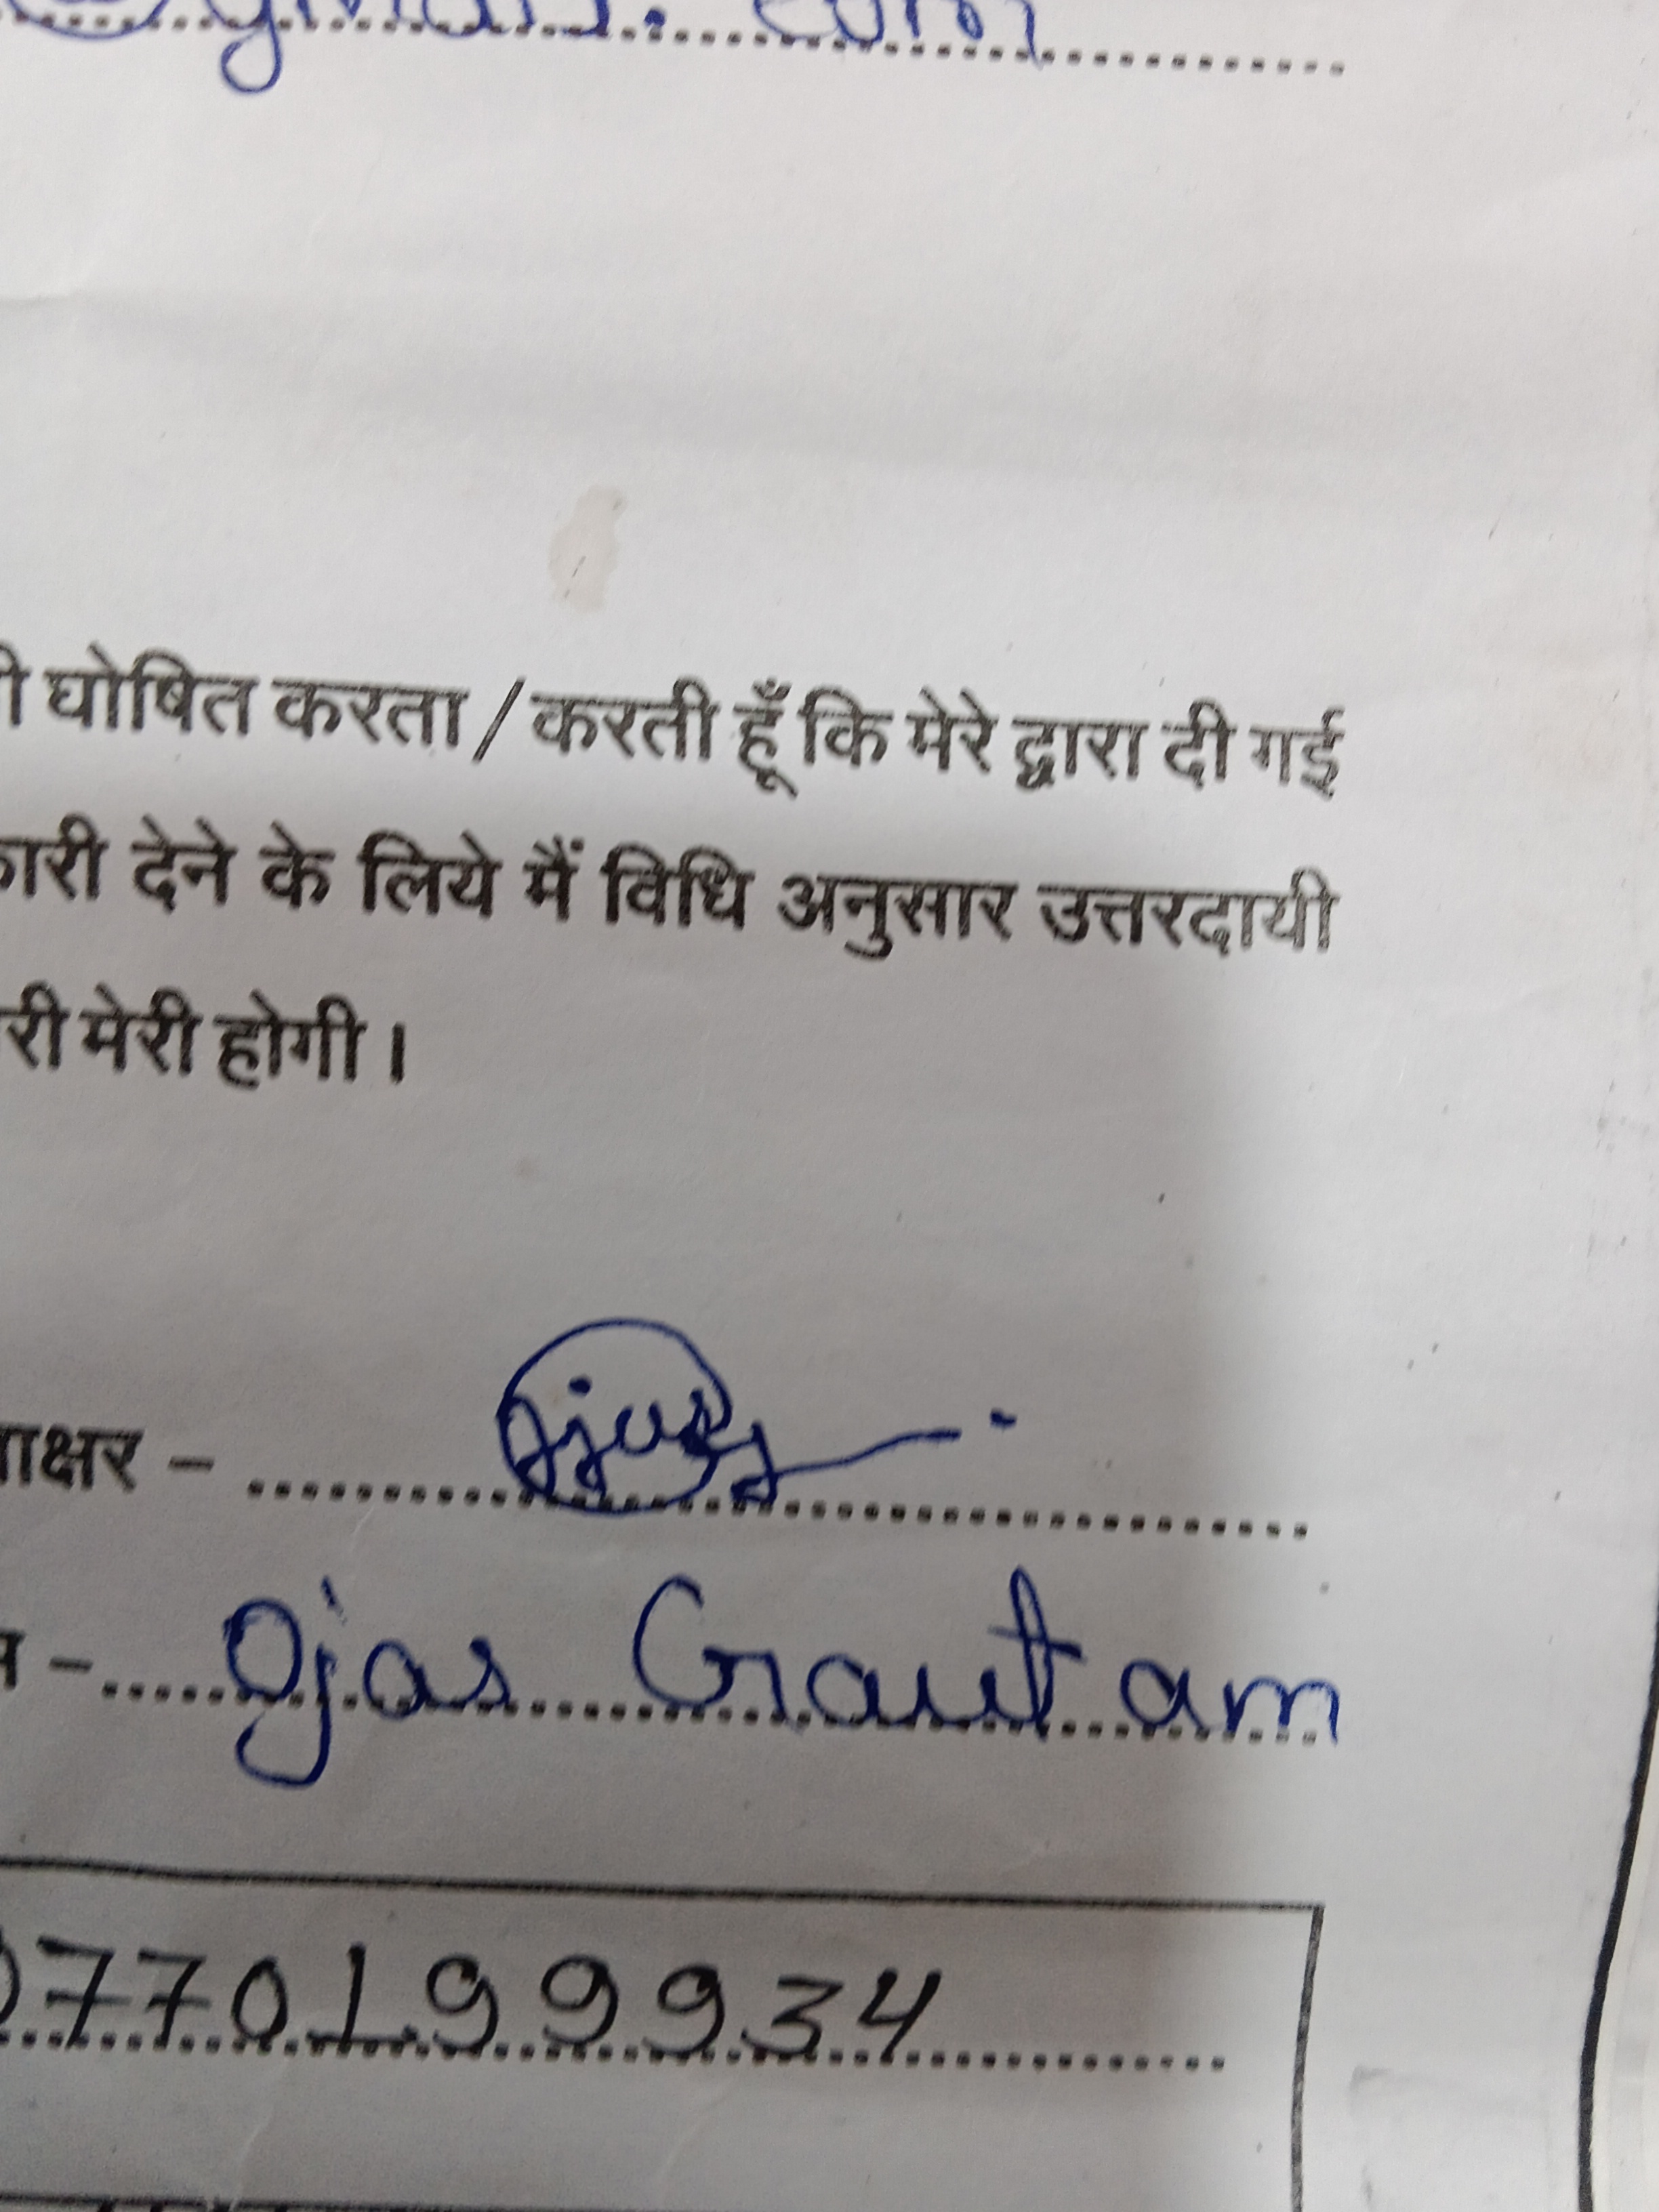 @gmail.com
घोषित करता / करती हूँ कि मेरे द्वारा दी गई
देने के लिये मैं विधि अनुसार उत्तरदायी
मेरी होगी।
Ojas
Ojas Gautam
770199934